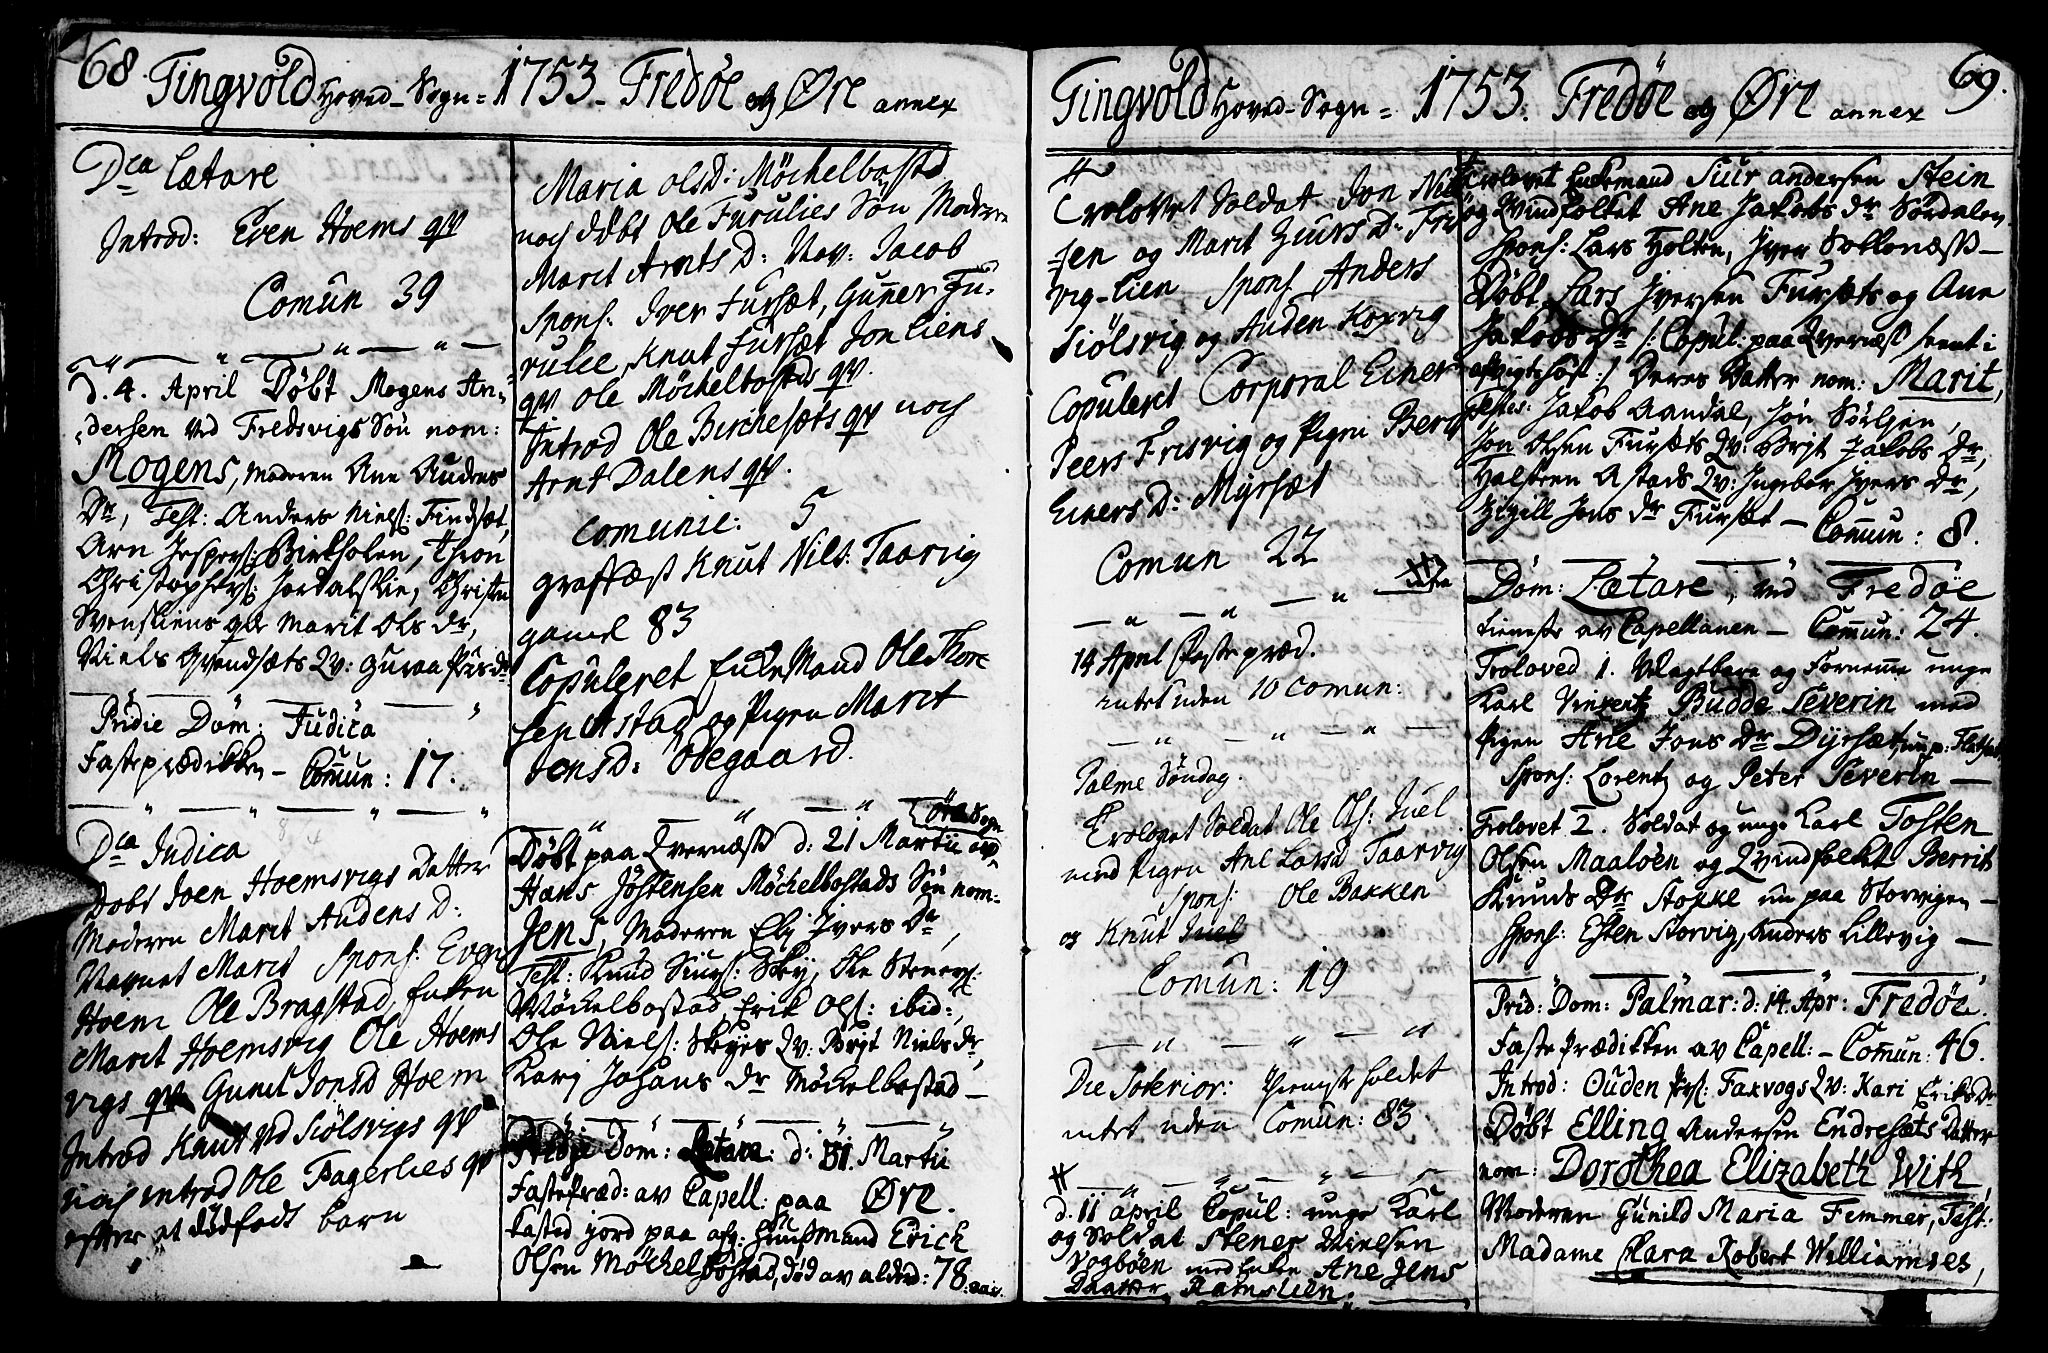 68. Tingvold Hoved-Sogn = 1753. Fredöe og Øre annex
Dca Lætare
Introd: Even Hoems qv
Comun 39
d. 4. April Döbt Mogens An-
dersen ved Fredsvigs Sön nom:
Mogens, Moderen Ane Audens
Dr, Test: Anders Niels: Findsæt,
Arn Jespers: Birkholen, Thron
Christophers: Jordalslie, Christen
Svensliens qv Marit Ols dr,
Niels Gvendsæts Qv: Guraa
Pridie Dom: Judica
Fasteprædikken – Comun: 17.
Dca Judica
Döbt Joen Hoemsvigs Datter
Moderen Marit Audens D:
Navnet Marit Spons: Even
Hoem Ole Bragstad, Enken
Marit Hoemsvig Ole Hoems
vigs qv Guned Jonsd Hoem
Introd Knut ved Siölsvigs qv
noch introd Ole Fagerlies qv
efter et dödfödt barn
Maria olsD: Möchelbostd
noch döbt Ole Furulies Sön Moderen
Marit ArntsD: Nav: Jacob
Spons: Iver Fursæt, Guner Fu-
rulie, Knut Fursæt Jon Liens
qv Ole Möchelbostds qv.
Introd Ole Birchesæts qv noch
Arnt Dalens qv.
Comunic: 5
graffæst Knut Nils: Taarvig
gamel 83
Copuleret EnkeMand Ole Thore
sen Arstad og Pigen Marit
JonsD: Ödegaard.
Öre Sogn
Döbt paa Qvernæss d: 21 Martii
Hans Jöstensen Möchelbostads Sön nom:
Jens, Moderen Elj Ivers Dr,
Test: Knud Siurs: Skej, Ole Steners:
Möchelbostad, Erik Ols: ibid:,
Ole Niels: Skejes Qv: Brijt Niels dr,
Karj Johans dr Möchelbostad –
Pridie Dom: Lætare: d: 31. Martii
Fastepræd: av Capell: paa Øre.
kasted jord paa afg: Huusmand Erich
Olsen Möchelbostad, död av alder: 78 aar.
Tingvold Hoved-Sogn = 1753. Fredöe og Øre annex 69.
Trolovet Soldat Jon Niel
sen og Marit Siurs D: Fred
vig-lien Spons Anders
Siölsvig og Auden Koxvig
Copuleret Corporal Einer
Peers Frisvig og Pigen Berit
Einers D: Myrsæt
Comun 22
14 April Faste præd.
intet uden 10 comun:
Palme Söndag.
Trolovet Soldat Ole Ols: Juel
med Pigen Ane Larsd Taarvig
Spons: Ole Bakken
og Knut Juel
Comun: 19
Die Viridium: Tieneste holdet
intet uden Comun: 83
d. 11 april Copul: unge Karl
og Soldat Stener Nielsen
Vogböen med Enken Ane Jens
Daatter Ramslien.
Trolovet Enkemand Siur andersen Stein
og Qvindfolket Ane Jakobs dr Sördalen
Spons: Lars Holten, Iver Solkenæss –
Döbt Lars Iversen Fursæts og Ane
Jakobs dr /: Copul: paa Qvernæss sent i
afvigte höst :/ Deres Datter nom: Marit,
Testes: Jakob Aandal, Jon Sörlien,
Jon Olsen Fursæts Qv: Brijt Jakobs dr,
Halsteen Astads Qv: Ingebor Ivers dr,
Sigill Jons dr Fursæt – Comun: 8.
Dom: Lætare, ved Fredöe
tieneste av Capellanen – Comun: 24.
Troloved 1. Velagtbare og Fornemme unge
Karl Vinsentz Budde Severin med
Pigen Ane Jons dr Dyrsæt,
Spons: Lorentz og Peter Severin –
Trolovet 2. Soldat og unge Karl Tosten
Olsen Maalöen og Qvindfolket Berrit
Knuds Dr Stokke nu paa Storvigen –
Spons: Esten Storvig, Anders Lillevig –
Prid: Dom: Palmar: d: 14. Apr: Fredöe.
Faste Prædikken av Capell: – Comun: 46.
Introd: Ouden Faxvogs Qv: Kari Eriks dr
Döbt Elling Andersen Endresæts Datter
nom: Dorothea Elizabeth With,
Moderen Gunild Maria Femmer, Test:
Madame Clara Robert Williamses,